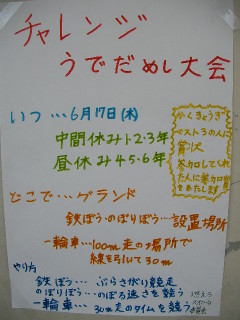 チャレンジ
うでだめし大会
いつ…6月17日(木)
中間休み1・2・3年
昼休み4・5・6年
かくきょうぎ
ベスト3の人に
賞状
参加してくれ
た人に参加賞
をあたします
どこで…グランド
鉄ぼう・のぼりぼう…設置場所
一輪車…100m走の場所で
線を引いて30m
やり方
鉄ぼう…ぶらさがり競走
のぼりぼう…のぼる速さを競う
一輪車…30m走のタイムを競う